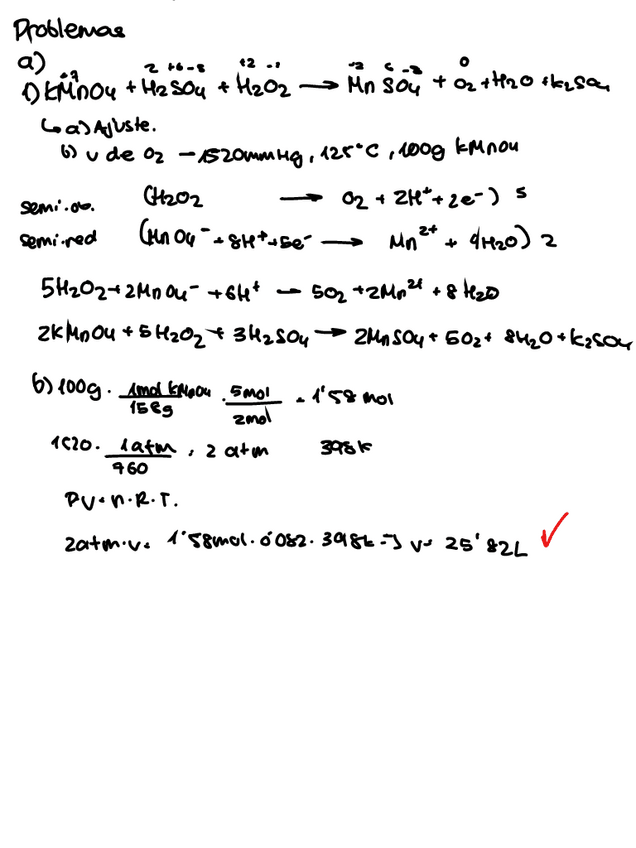 Problemas
a)
+7 2 +6 -8 +2 -1 +2 6 -8 0
1) KMnO4 + H2SO4 + H2O2 → MnSO4 + O2 + H2O + K2SO4
↳ a) Ajuste.
b) v de O2 - 1520mmHg, 125°C, 100g KMnO4
semi.ox. (H2O2 → O2 + 2H+ + 2e-) 5
semi.red (MnO4- + 8H+ + 5e- → Mn2+ + 4H2O) 2
5H2O2 + 2MnO4- + 6H+ → 5O2 + 2Mn2+ + 8H2O
2KMnO4 + 5H2O2 + 3H2SO4 → 2MnSO4 + 5O2 + 8H2O + K2SO4
b) 100g · 1mol KMnO4 / 158g · 5mol / 2mol = 1'58 mol
1520 · 1atm / 760 = 2 atm 398k
PV = n·R·T.
2atm·v = 1'58mol · 0'082 · 398k → v = 25'82L ✓